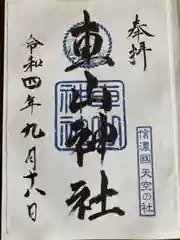 奉拝
東山神社
信濃國 天空の社
令和四年九月十八日